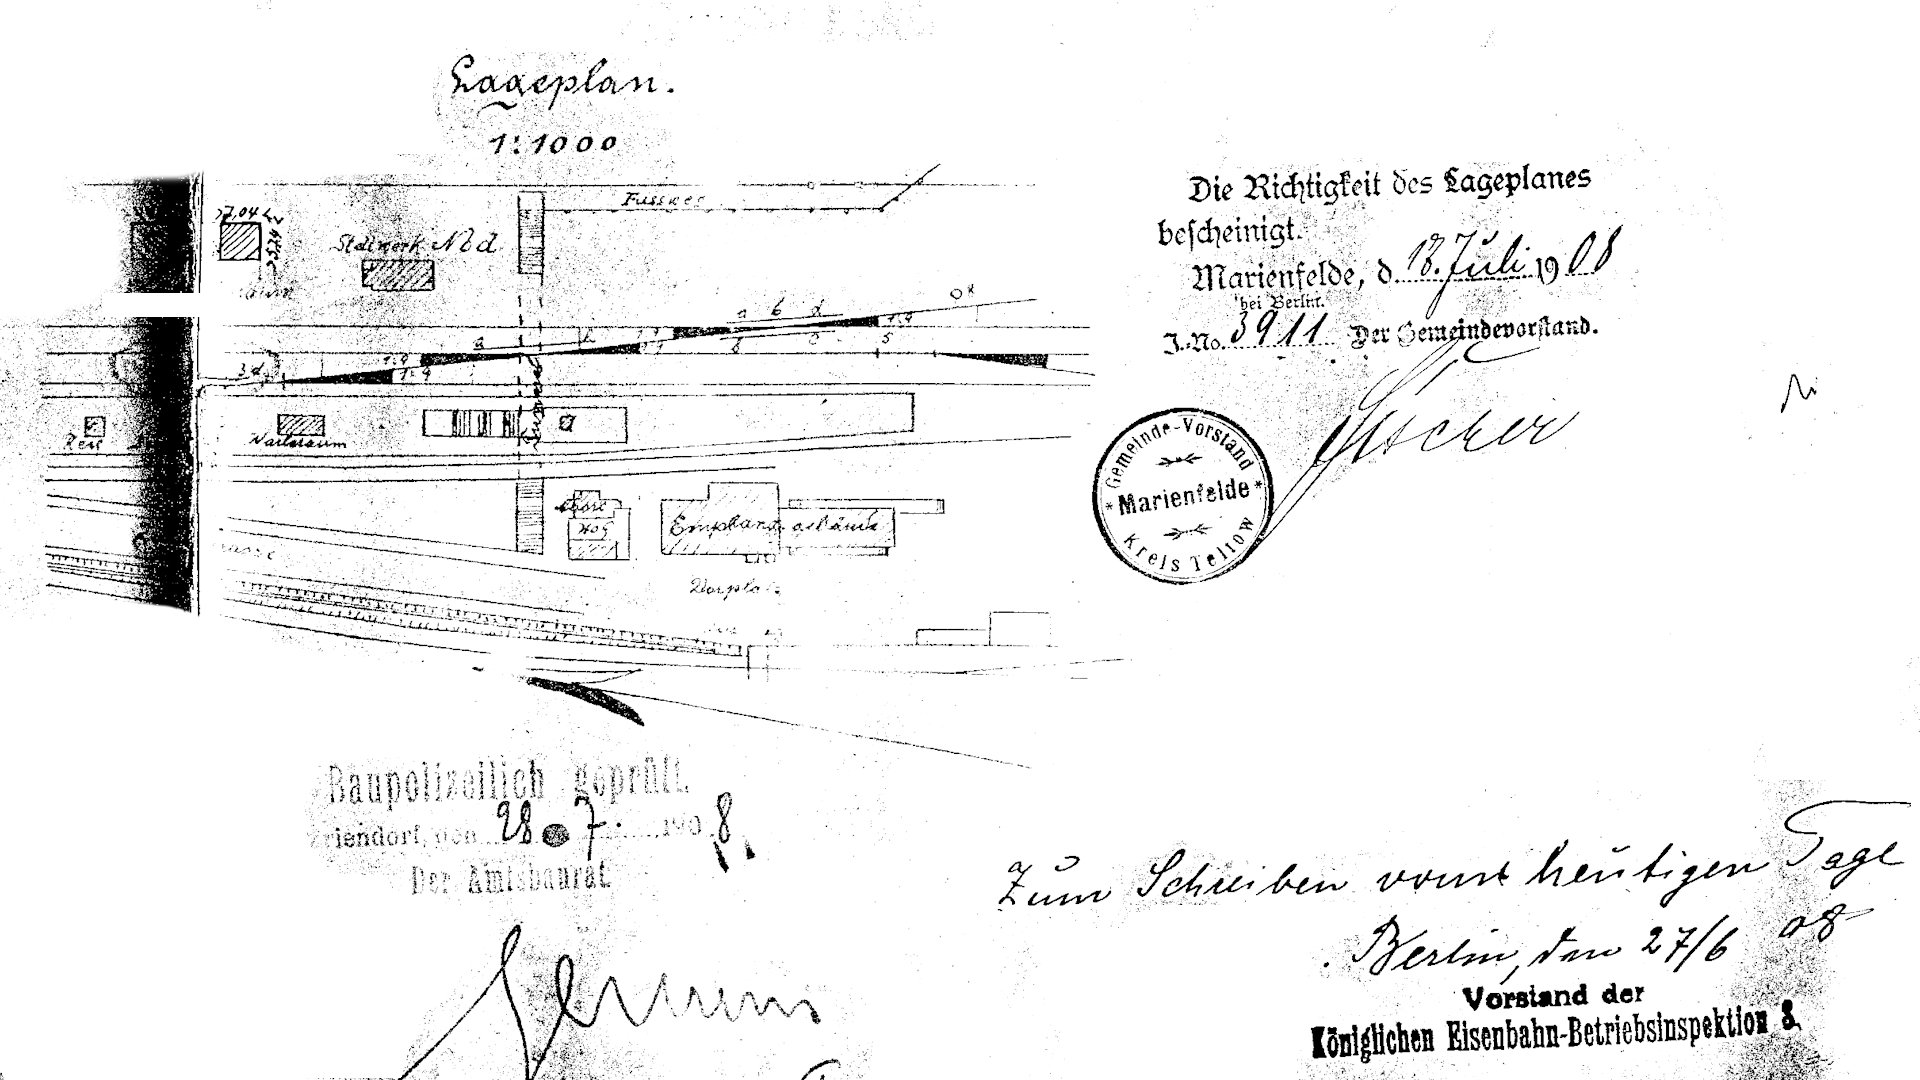 Lageplan.
1:1000
Fussweg
17,04
Stellwerk Md
a b d
1:9
3d
1:9
1:9
Warteraum
Abort
Hof
Empfangsgebäude
Vorplatz
Die Richtigkeit des Lageplanes
bescheinigt.
Marienfelde, d. 18. Juli 1908
bei Berlin.
J.-No. 3911 Der Gemeindevorstand.
Gemeinde-Vorstand
* Marienfelde *
Kreis Teltow
Baupolizeilich geprüft.
riendorf, den 28. 7. 1908
Der Amtsbaurat
Zum Schreiben vom heutigen Tage
Berlin, den 27/6 08
Vorstand der
Königlichen Eisenbahn-Betriebsinspektion 3.